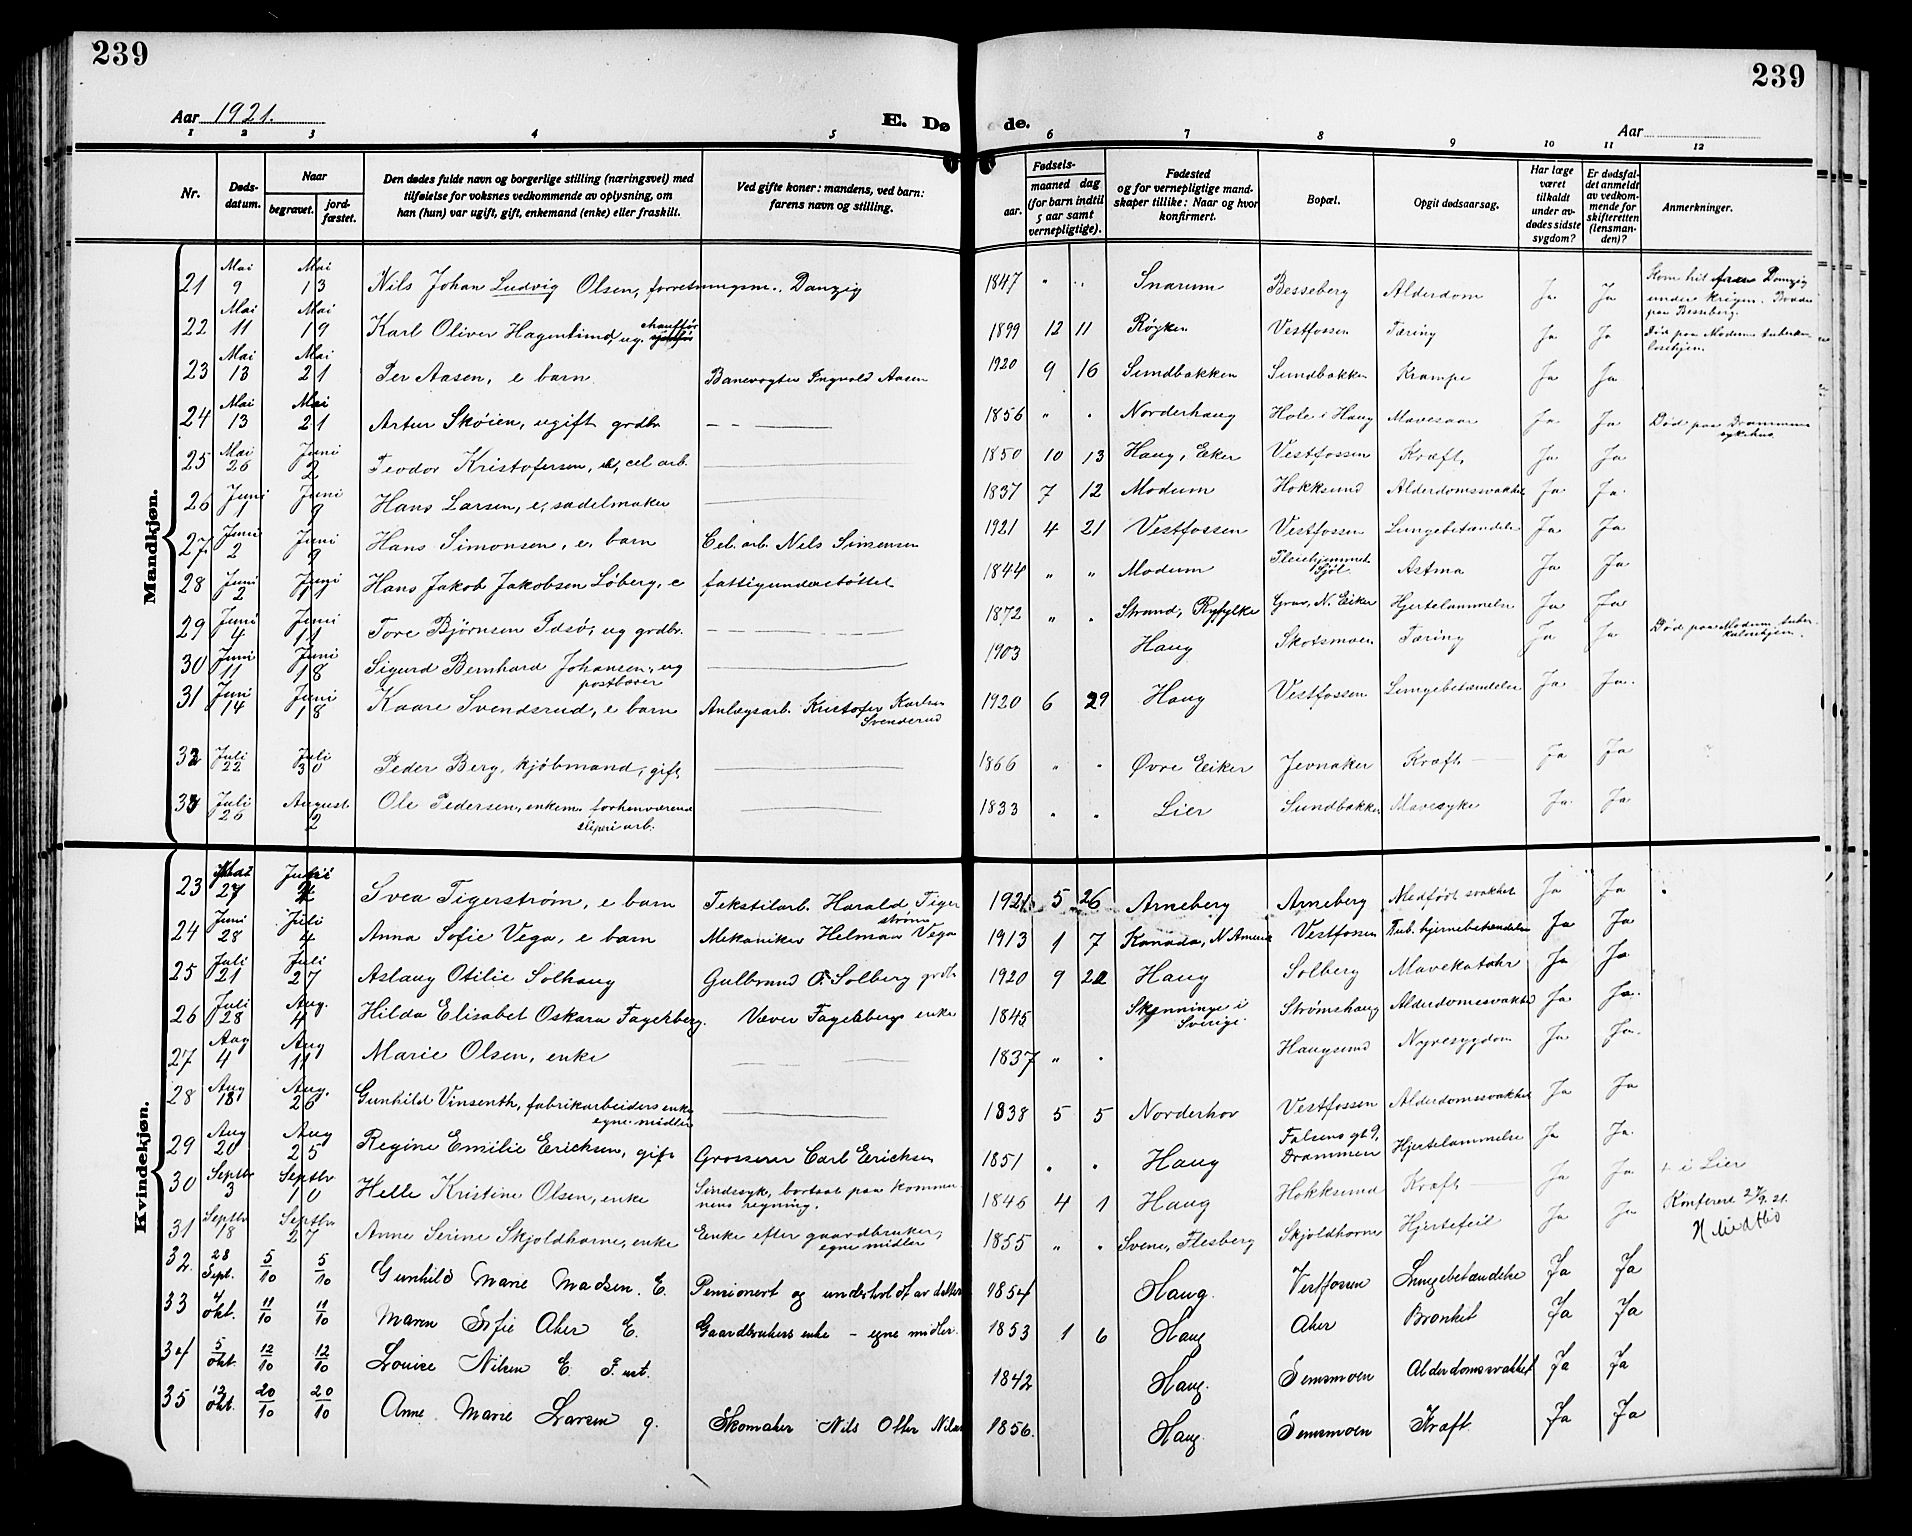 239
239
Aar 1921.
E. Døde.
Aar
1 2 3 4 5 6 7 8 9 10 11 12
Nr.
Døds-datum.
Naar
begravet.
jord-fæstet.
Den dødes fulde navn og borgerlige stilling (næringsvei) med tilføielse for voksnes vedkommende av oplysning, om han (hun) var ugift, gift, enkemand (enke) eller fraskilt.
Ved gifte koner: mandens, ved barn: farens navn og stilling.
Fødsels-
aar.
maaned dag (for barn indtil 5 aar samt vernepligtige).
Fødested og for vernepligtige mandskaper tillike: Naar og hvor konfirmert.
Bopæl.
Opgit dødsaarsag.
Har læge været tilkaldt under avdødes sidste sygdom?
Er dødsfaldet anmeldt av vedkommende for skifteretten (lensmanden)?
Anmerkninger.
Mandkjøn.
21 Mai 9 Mai 13 Nils Johan Ludvig Olsen, forretningsm., Danzig 1847 " " Snarum Besseberg Alderdom Ja Ja Kom hit fra Danzig under krigen. Bodde paa Besseberg.
22 Mai 11 Mai 19 Karl Oliver Hagenlund, ug. chauffør 1899 12 11 Røyken Vestfossen Tæring Ja Ja Død paa Modum tuberkulosehjem.
23 Mai 13 Mai 21 Per Aasen, e barn. Banevogter Ingvald Aasen 1920 9 16 Sundbakken Sundbakken Krampe Ja Ja
24 Mai 13 Mai 21 Artur Skøien, ugift grdbr. 1856 " " Norderhaug Hole i Haug Mavesaar Ja Ja Død paa Drammens sykehus
25 Mai 26 Juni 2 Teodor Kristofersen, e, cel. arb. 1850 10 13 Haug, Eker Vestfossen Kræft Ja Ja
26 Juni 1 Juni 9 Hans Larsen, e, sadelmaker 1837 7 12 Modum Hokksund Alderdomssvakhet Ja Ja.
27 Juni 2 Juni 9 Hans Simonsen, e. barn Cel. arb. Nils Simensen 1921 4 21 Vestfossen Vestfossen Lungebetændelse Ja Ja
28 Juni 2 Juni Hans Jakob Jakobsen Løberg, e fattigunderstøttet 1844 " " Modum Pleiehjemmet Sjøl Astma Ja Ja
29 Juni 4 Juni 11 Tore Bjørnsen Idsø, ug grdbr. 1872 " " Strand, Ryfylke Grav, N. Eiker Hjertelammelse Ja Ja
30 Juni 11 Juni 18 Sigurd Bernhard Johansen, ug postbærer 1903 Haug Skotsmoen Tæring Ja Ja Død paa Modum tuberkulosehjem.
31 Juni 14 Juni 18 Kaare Svendsrud, e barn Anlægsarb. Kristofer Karlsen Svendsrud 1920 6 29 Haug Vestfossen Lungebetændelse Ja Ja.
32 Juli 22 Juli 30 Peder Berg, kjøbmand, gift 1866 " " Øvre Eiker Jevnaker Kræft Ja Ja
33 Juli 26 August 2 Ole Pedersen, enkem. forhenværende sliperiarb. 1833 " " Lier Sundbakken Mavesyke Ja Ja
Kvindekjøn.
23 27 Svea Tigerstrøm, e barn Tekstilarb. Harald Tigerstrøm 1921 5 26 Arneberg Arneberg Medfødt svakhet Ja Ja
24 Juni 28 Juli 4 Anna Sofie Vega, e barn Mekaniker Helmar Vega 1913 1 7 Kanada, N. Amerika Vestfossen Tub. hjernebetændelse Ja Ja
25 Juli 21 Juli 27 Aslaug Otilie Solhaug Gulbrand O. Solberg grdbr 1920 9 Haug Solberg Mavekatahr Ja Ja
26 Juli 28 Aug. 4 Hilda Elisabet Oskara Fagerberg. Væver Fagerbergs enke 1845 Skenninge i Sverige Strømshaug Alderdomssvakhet Ja Ja.
27 Aug 4 Aug 11 Marie Olsen, enke 1837 " " Haugsund Nyresygdom Ja Ja.
28 Aug 18 Aug. 26 Gunhild Vinsenth, fabrikarbeiders enke egne midler 1838 5 5 Norderhov Vestfossen Alderdomssvakhet Ja Ja
29 Aug 20 Aug 25 Regine Emilie Ericksen, gift Grosserer Carl Ericksen 1851 " " Haug Falsens gt 9, Drammen Hjertelammelse Ja Ja.
30 Septbr 3 Septbr 10 Helle Kristine Olsen, enke Sindssyk, bortsat paa kommunens regning. 1846 4 1 Haug Hokksund Kræft Ja Ja + i Lier
31 Septbr 18 Septbr 27 Anne Serine Skjoldhorne, enke Enke efter gaardbruker, egne midler 1855 " " Svene, Flesberg Skjoldhorne Hjertefeil Ja Ja Konferert 27/9. 21.
32. 28 Sept. 5/10 5/10 Gunhild Marie Madsen. E. Pensionert og underholdt av datter 1854 Haug. Vestfossen Lungebetændelse Ja Ja
33 4 okt. 11/10 11/10 Maren Sofie Aker E. Gaardbrukers enke - egne midler. 1853 1 6 Haug Aker Bronkit Ja Ja
34 5 okt. 12/10 12/10 Lovise Nilsen E. F. ust. 1842 Haug. Semsmoen Alderdomssvakhet Ja Ja
35 12 okt. 20/10 20/10 Anne Marie Larsen g. Skomaker Nils Otter Nilsen 1856. Haug. Semsmoen Kræft Ja Ja